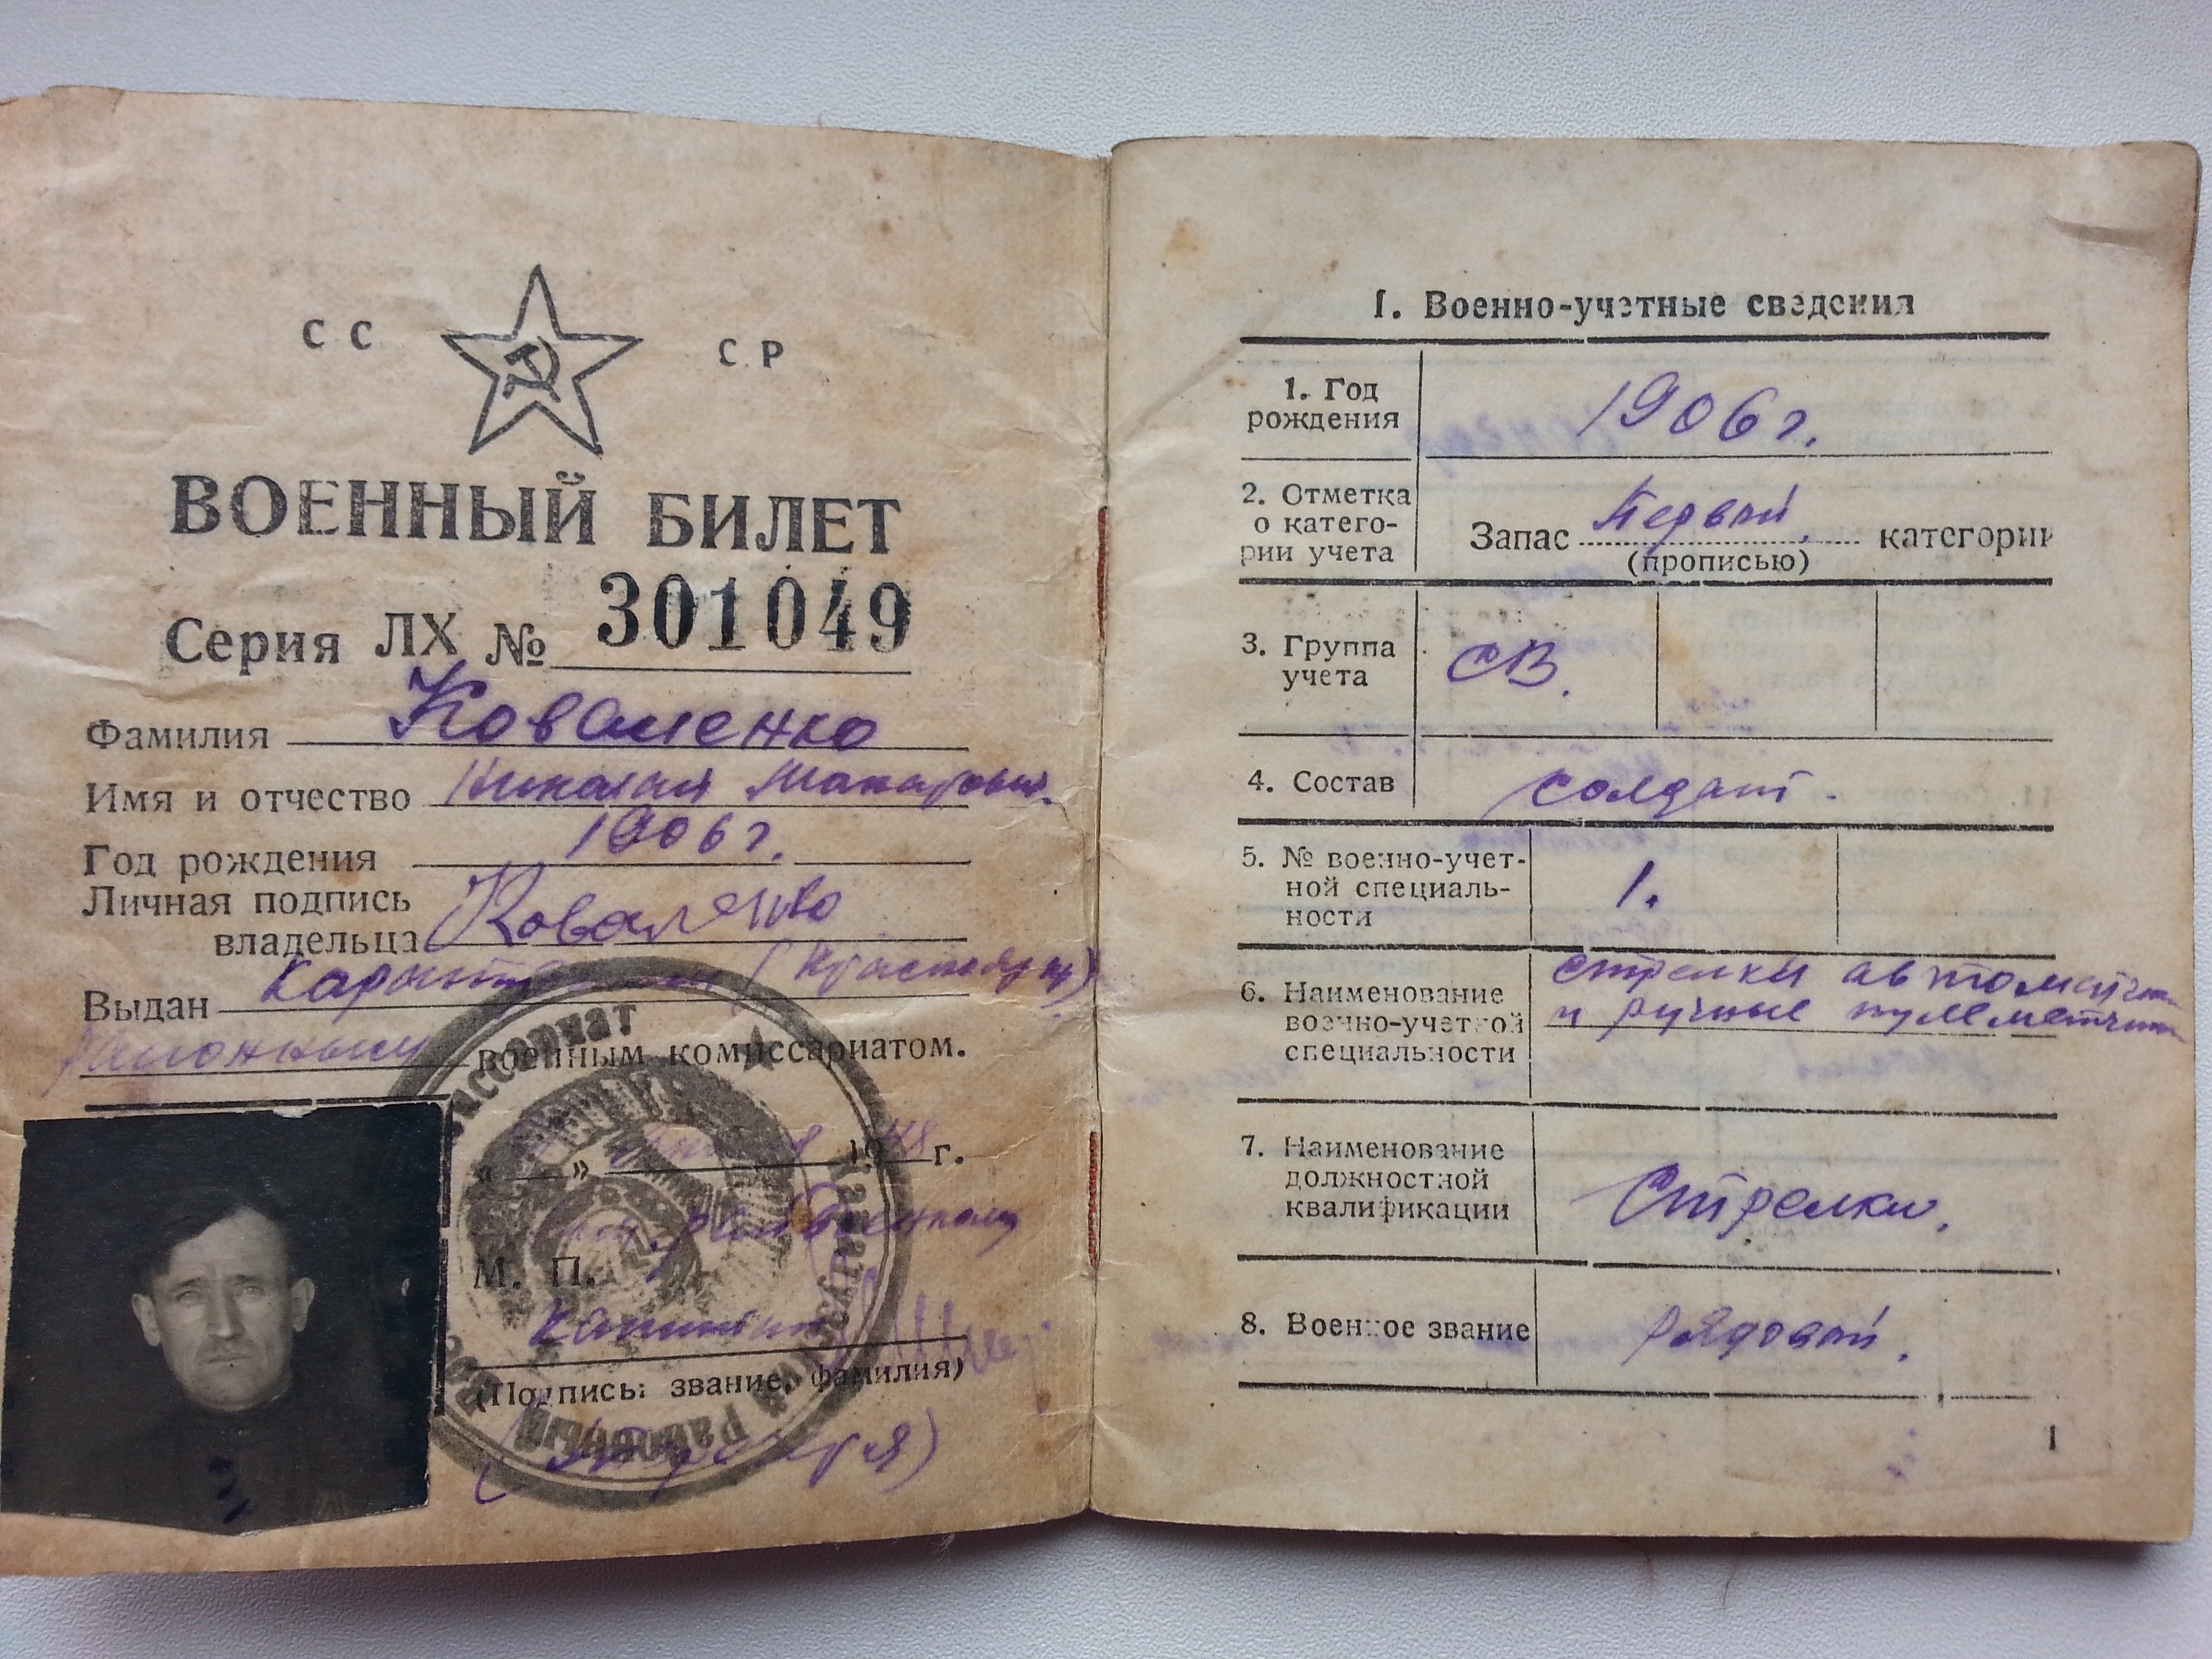 СС СР
ВОЕННЫЙ БИЛЕТ
Серия ЛХ № 301049
Фамилия Коваленко
Имя и отчество Николай Макарович
Год рождения 1906 г.
Личная подпись
владельца Коваленко
Выдан
районным военным комиссариатом.
« » 19 г.
М. П.
капитан
(Подпись, звание, фамилия)
I. Военно-учетные сведения
1. Год
рождения 1906 г.
2. Отметка
о катего-
рии учета Запас Первой категории
(прописью)
3. Группа
учета СВ.
4. Состав солдат.
5. № военно-учет-
ной специаль-
ности 1.
6. Наименование
военно-учетной
специальности стрелки автоматчики
и ручные пулеметчики
7. Наименование
должностной
квалификации Стрелки.
8. Военное звание рядовой.
1